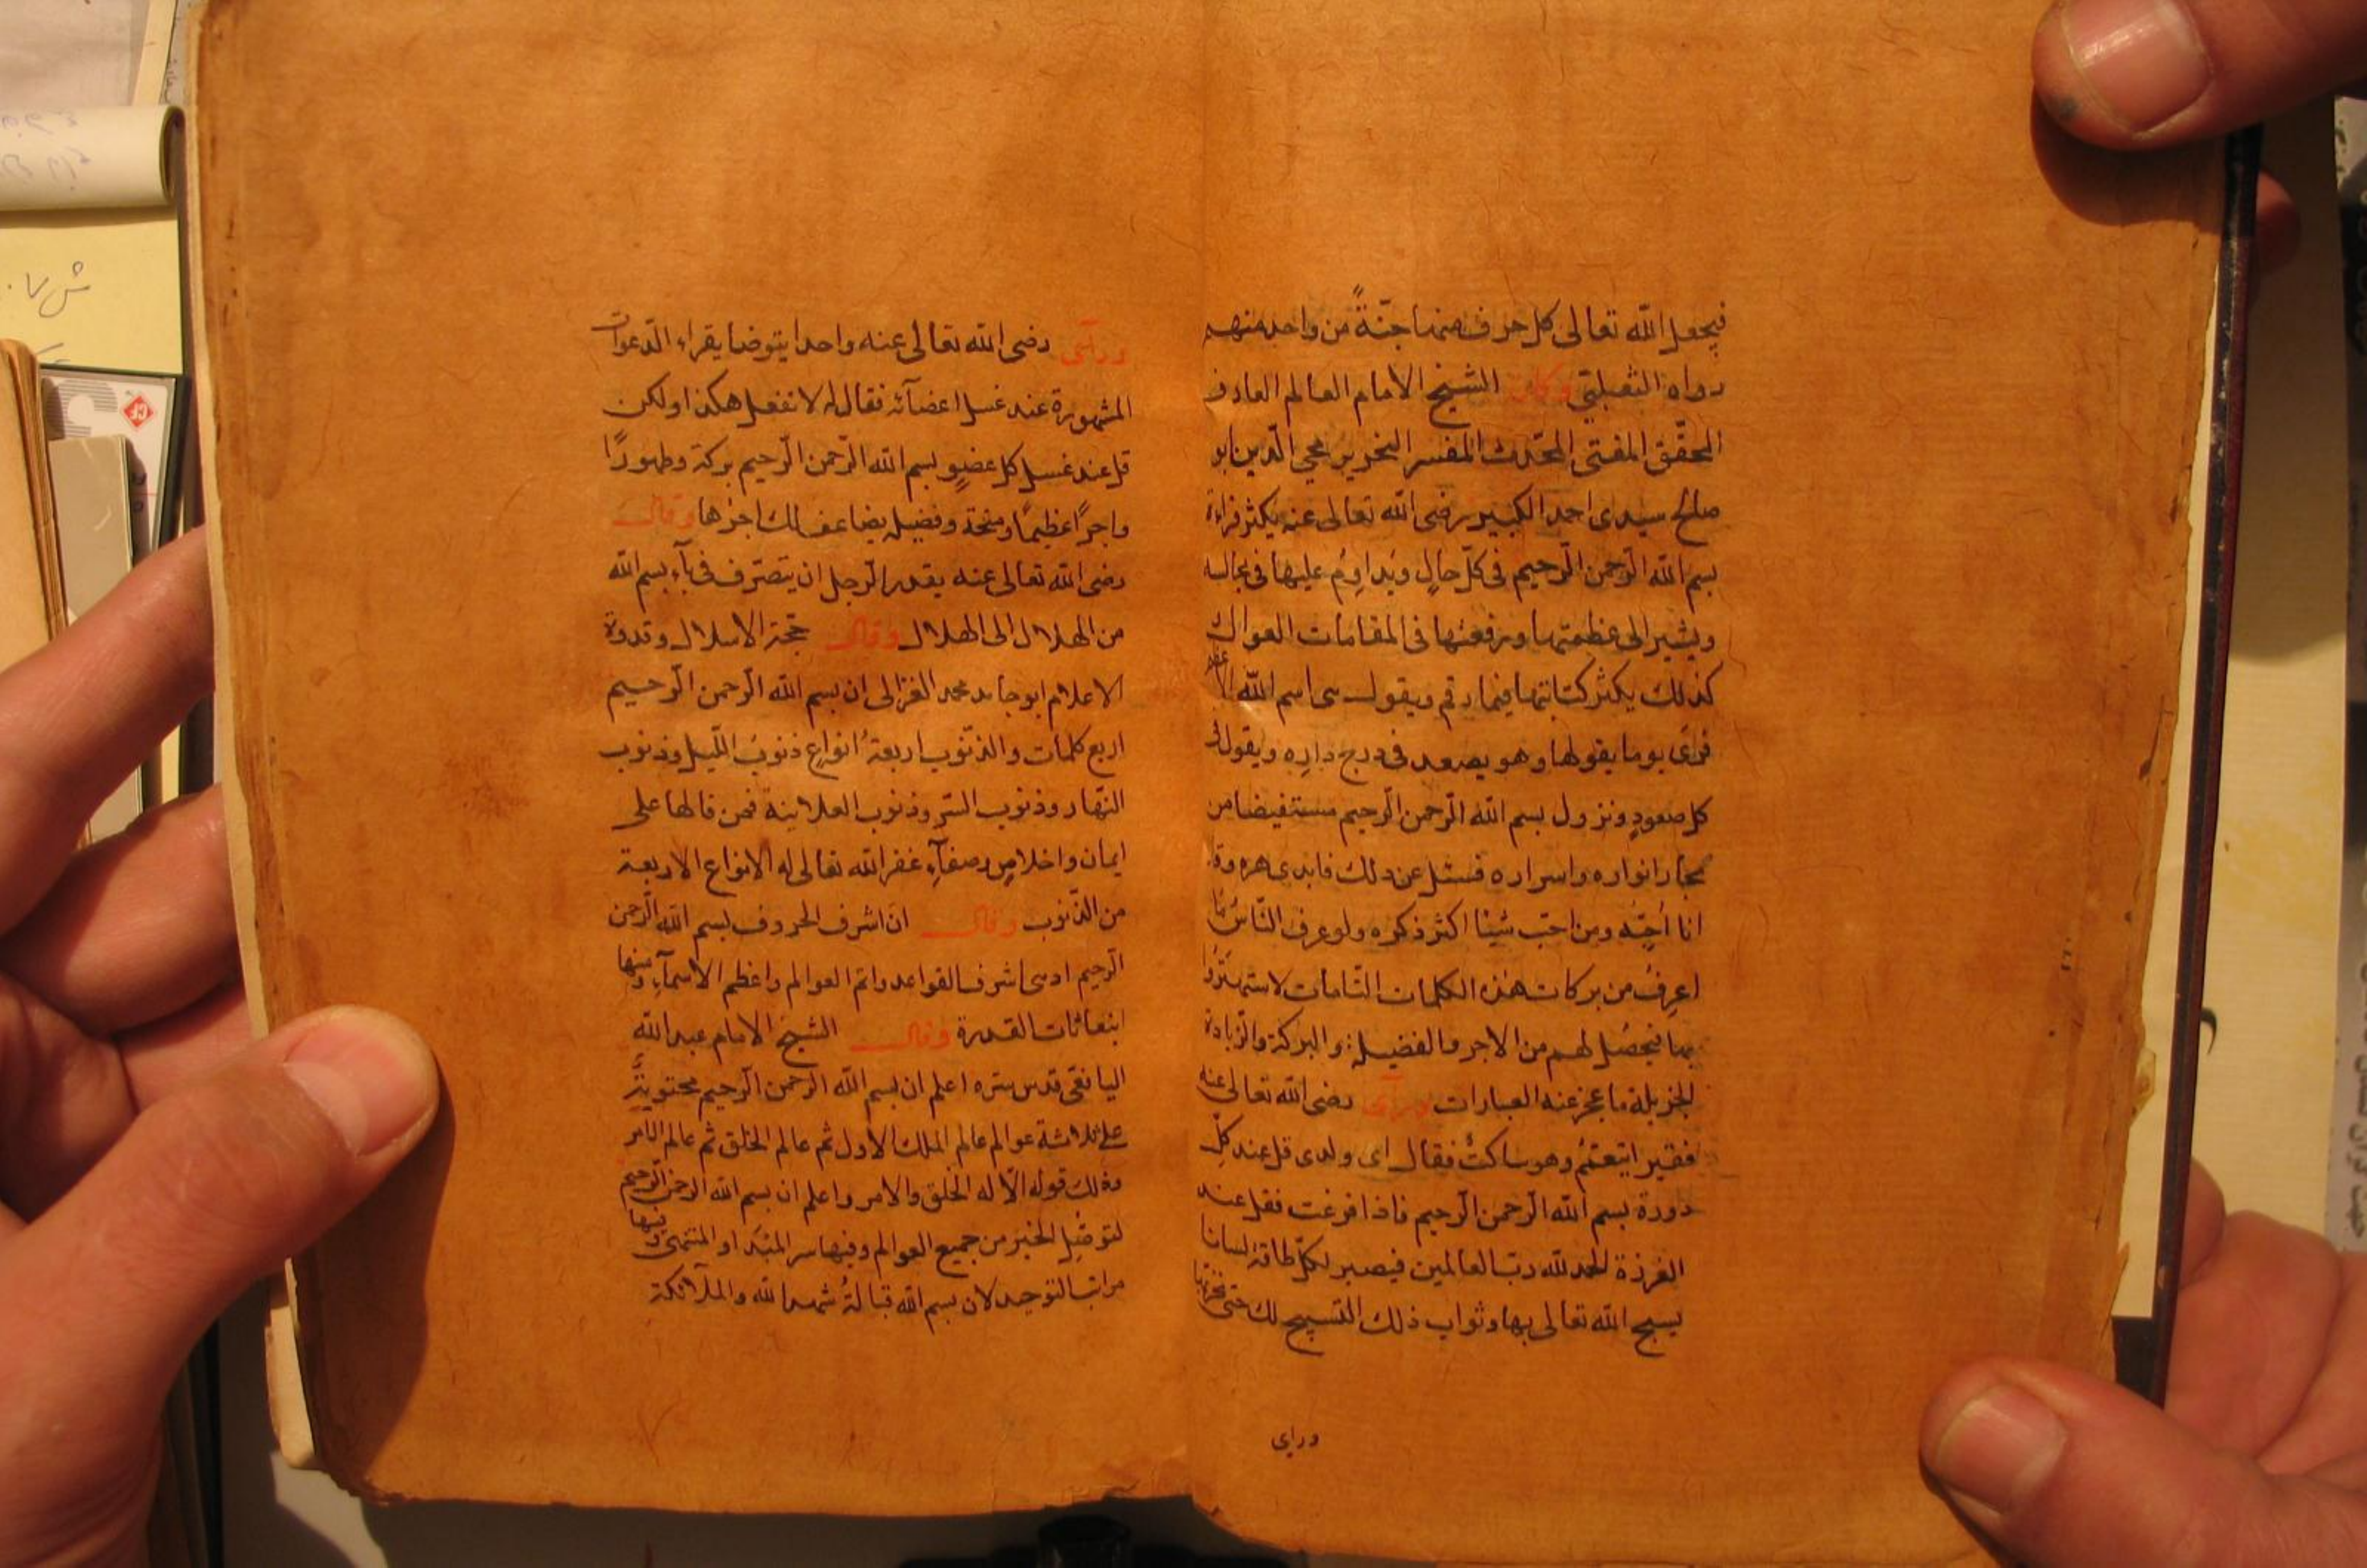 فيجعل الله تعالى كل حرف منها جنّةً من واحد منهم
رواه الثعلبيّ وكان الشيخ الامام العالم العارف
المحقّق المفتى المحّدث المفسر النحرير محي الّدين ابو
صالح سيدى احمد الكبير رضى الله تعالى عنه يكثر قراءة
بسم الله الرّحمن الرّحيم فى كلّ حالٍ ويُداوِمُ عليها فى مجالسه
ويشير الى عظمتها ورفعتها فى المقامات العوال
كذلك يكثر كتابتها فيما رقم ويقول هى اسم الله الاعظم
فرأى يوما يقولها وهو يصعد فى درج داره ويقول فى
كل صعودٍ ونزول بسم الله الرّحمن الرّحيم مستفيضا من
بحار انواره واسراره فسئل عن ذلك فابدى
انا اُحِبّه ومن احبّ شيئا اكثر ذكره ولو عرف النّاسُ مّا
اعرِفُ من بركات هذه الكلمات التّامات لاستهتَرُوا
بها فيحصُل لهم من الاجر والفضيلة والبركة والزّيادة
الجزيلة ما عجز عنه العبارات ورأى رضى الله تعالى عنه
فقير ايتعمّمُ وهو ساكتٌ فقال اى ولدى قل عند كلِّ
دورة بسم الله الرّحمن الرّحيم فاذا فرغت فقل عند
الغرزة الحمد لله ربّ العالمين فيصير لكلّ طاقة لسانا
يسبح الله تعالى بها وثواب ذلك التسبيح لك حتى
وراى
ورأى رضى الله تعالى عنه واحدا يتوضا يقراء الّدعوات
المشهورة عند غسل اعضآئه فقال له لا تفعل هكذا ولكن
قل عند غسل كل عضوٍ بسم الله الرّحمن الرّحيم بركة وطهورًا
واجرًا عظيمًا ومنحة وفضيلة يضاعف لك اجرُها وقال
رضى الله تعالى عنه يقدر الرّجل ان يتصّرف فى بآء بسم الله
من الهلال الى الهلال وقال حجّة الاسلال وقدوة
الاعلام ابو حامد محمد الغزالى ان بسم الله الرّحمن الرّحيم
اربع كلمات والذنّوب اربعةُ انواعٍ ذنوبُ اللّيل وذنوب
النّهار وذنوب السّر وذنوب العلانية فمن قالها على
ايمان واخلاصٍ وصفآءٍ غفر الله تعالى له الانواع الاربعة
من الذّنوب وقال انّ اشرف الحروف بسم الله الرّحمن
الرّحيم اشرف القواعد واتم العوالم واعظم الاسمآءِ ومنها
انبعاثات القدرة وقال الشيخ الامام عبد الله
اليافعّى قدس سّره اعلم ان بسم الله الرّحمن الرّحيم محتويةٌ
على ثلاثة عوالم عالم الملك الاول ثم عالم الخلق ثم عالم الامر
وذلك قوله الّا له الخلق والامر واعلم ان بسم الله الرحمن الّرحيم
لتوصّل الخير من جميع العوالم وفيها سر المبتدا والمنتهى وفيها
مراتب التوحيد لان بسم الله قبالةُ شهد الله والملآئكة